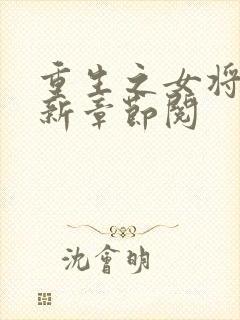 重生之女将
新章節閱
沈會明